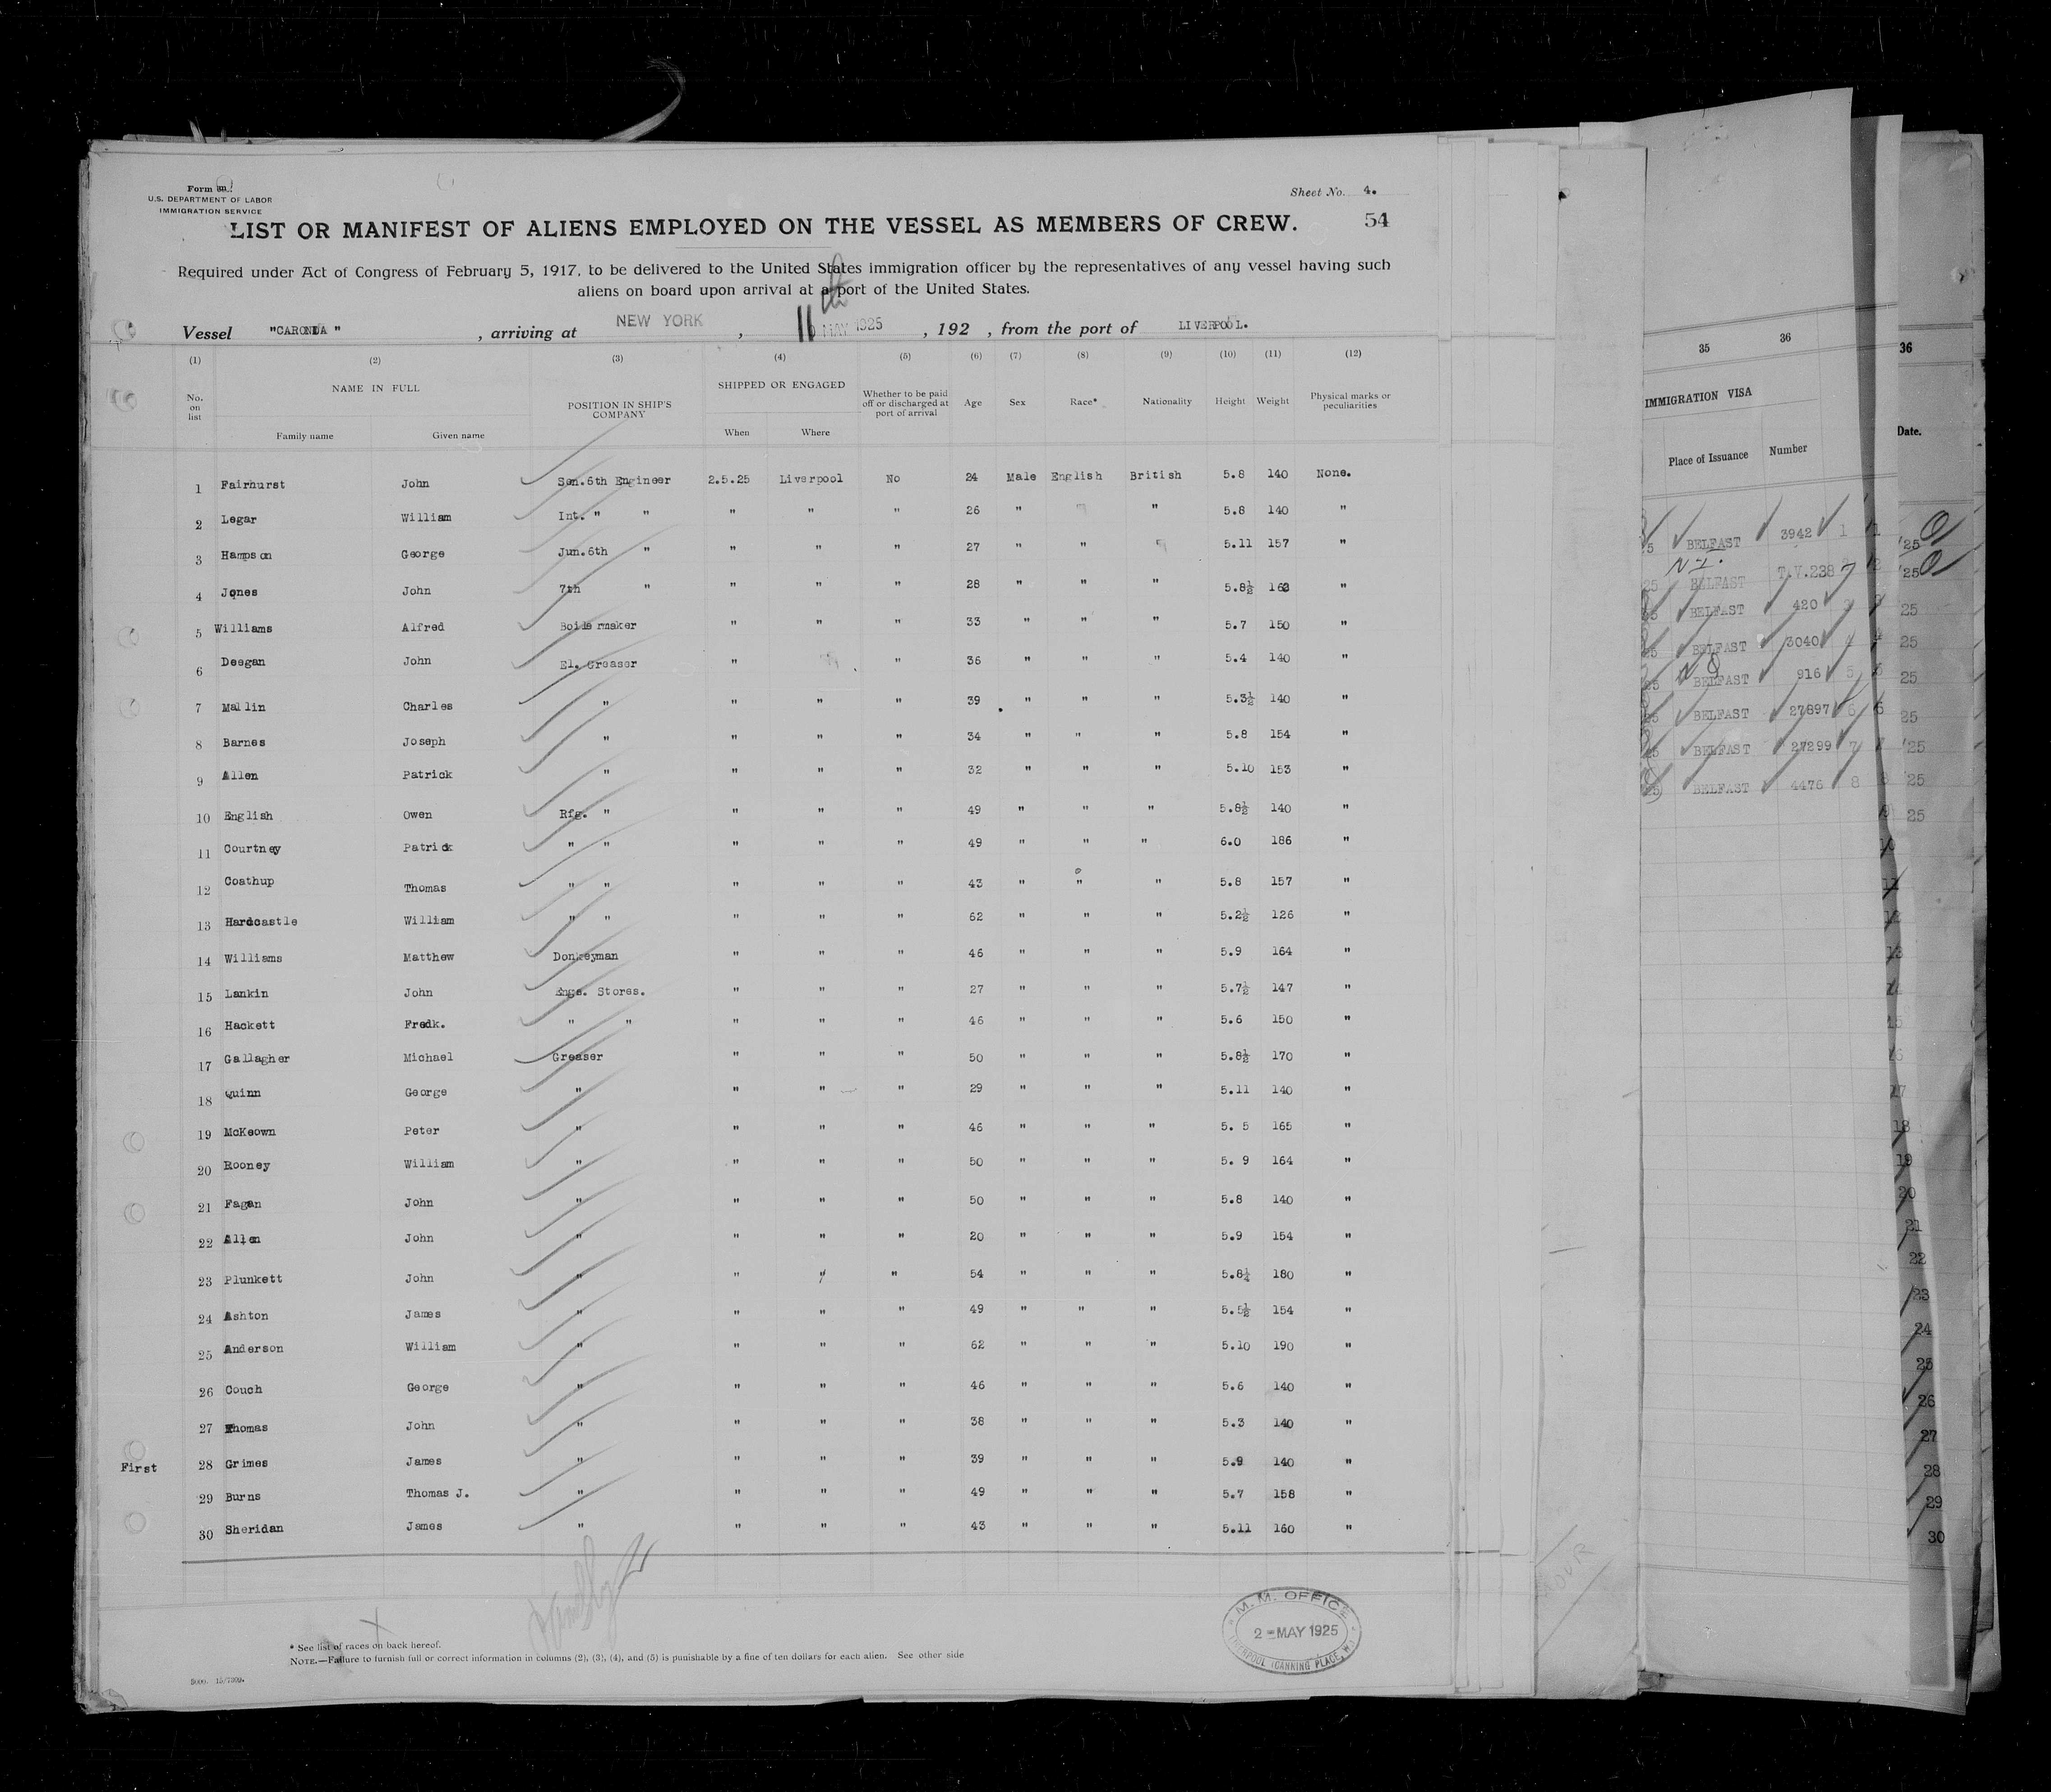 Form
U.S. DEPARTMENT OF LABOR
IMMIGRATION SERVICE
Sheet No. 4.
LIST OR MANIFEST OF ALIENS EMPLOYED ON THE VESSEL AS MEMBERS OF CREW. 54
Required under Act of Congress of February 5, 1917, to be delivered to the United States immigration officer by the representatives of any vessel having such
aliens on board upon arrival at a port of the United States.
Vessel "CARONIA", arriving at NEW YORK, 11th MAY 1925, 192 , from the port of LIVERPOOL.
(1) (2) (3) (4) (5) (6) (7) (8) (9) (10) (11) (12)
No. on list NAME IN FULL Family name Given name POSITION IN SHIP'S COMPANY SHIPPED OR ENGAGED When Where Whether to be paid off or discharged at port of arrival Age Sex Race* Nationality Height Weight Physical marks or peculiarities
1 Fairhurst John Sen.6th Engineer 2.5.25 Liverpool No 24 Male English British 5.8 140 None.
2 Legar William Int. " " " " " 26 " " " 5.8 140 "
3 Hampson George Jun.6th " " " " 27 " " " 5.11 157 "
4 Jones John 7th " " " " 28 " " " 5.8½ 163 "
5 Williams Alfred Boilermaker " " " 33 " " " 5.7 150 "
6 Deegan John El. Greaser " " " 36 " " " 5.4 140 "
7 Mallin Charles " " " " 39 " " " 5.3½ 140 "
8 Barnes Joseph " " " " 34 " " " 5.8 154 "
9 Allen Patrick " " " " 32 " " " 5.10 153 "
10 English Owen Rfg. " " " " 49 " " " 5.8½ 140 "
11 Courtney Patrick " " " " " 49 " " " 6.0 186 "
12 Coathup Thomas " " " " " 43 " " " 5.8 157 "
13 Hardcastle William " " " " " 62 " " " 5.2½ 126 "
14 Williams Matthew Donkeyman " " " 46 " " " 5.9 164 "
15 Lankin John Engs. Stores. " " " 27 " " " 5.7½ 147 "
16 Hackett Fredk. " " " " " 46 " " " 5.6 150 "
17 Gallagher Michael Greaser " " " 50 " " " 5.8½ 170 "
18 Quinn George " " " " 29 " " " 5.11 140 "
19 McKeown Peter " " " " 46 " " " 5. 5 165 "
20 Rooney William " " " " 50 " " " 5. 9 164 "
21 Fagan John " " " " 50 " " " 5.8 140 "
22 Allen John " " " " 20 " " " 5.9 154 "
23 Plunkett John " " " " 54 " " " 5.8¼ 180 "
24 Ashton James " " " " 49 " " " 5.5½ 154 "
25 Anderson William " " " " 62 " " " 5.10 190 "
26 Couch George " " " " 46 " " " 5.6 140 "
27 Thomas John " " " " 38 " " " 5.3 140 "
First 28 Grimes James " " " " 39 " " " 5.9 140 "
29 Burns Thomas J. " " " " 49 " " " 5.7 158 "
30 Sheridan James " " " " 43 " " " 5.11 160 "
* See list of races on back hereof.
NOTE.—Failure to furnish full or correct information in columns (2), (3), (4), and (5) is punishable by a fine of ten dollars for each alien. See other side
M. M. OFFICE
2 - MAY 1925
LIVERPOOL (CANNING PLACE, W.)
35 36 36
IMMIGRATION VISA
Place of Issuance Number Date.
BELFAST 3942 1 1 '25
N.I.
BELFAST T.V.238 2 '25
BELFAST 420 25
BELFAST 3040 4 4 25
BELFAST 916 5 25
BELFAST 27897 6 6 25
BELFAST 27299 7 '25
BELFAST 4476 8 8 '25
25
17
18
19
20
21
22
23
24
25
26
27
28
29
30